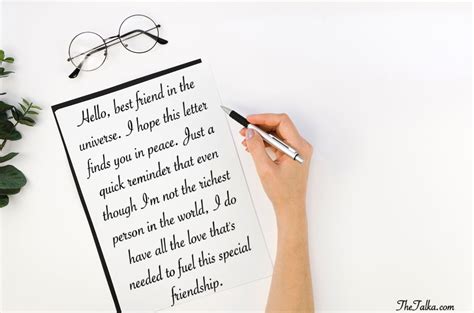 Hello, best friend in the
universe. I hope this letter
finds you in peace. Just a
quick reminder that even
though I'm not the richest
person in the world, I do
have all the love that's
needed to fuel this special
friendship.
TheTalka.com